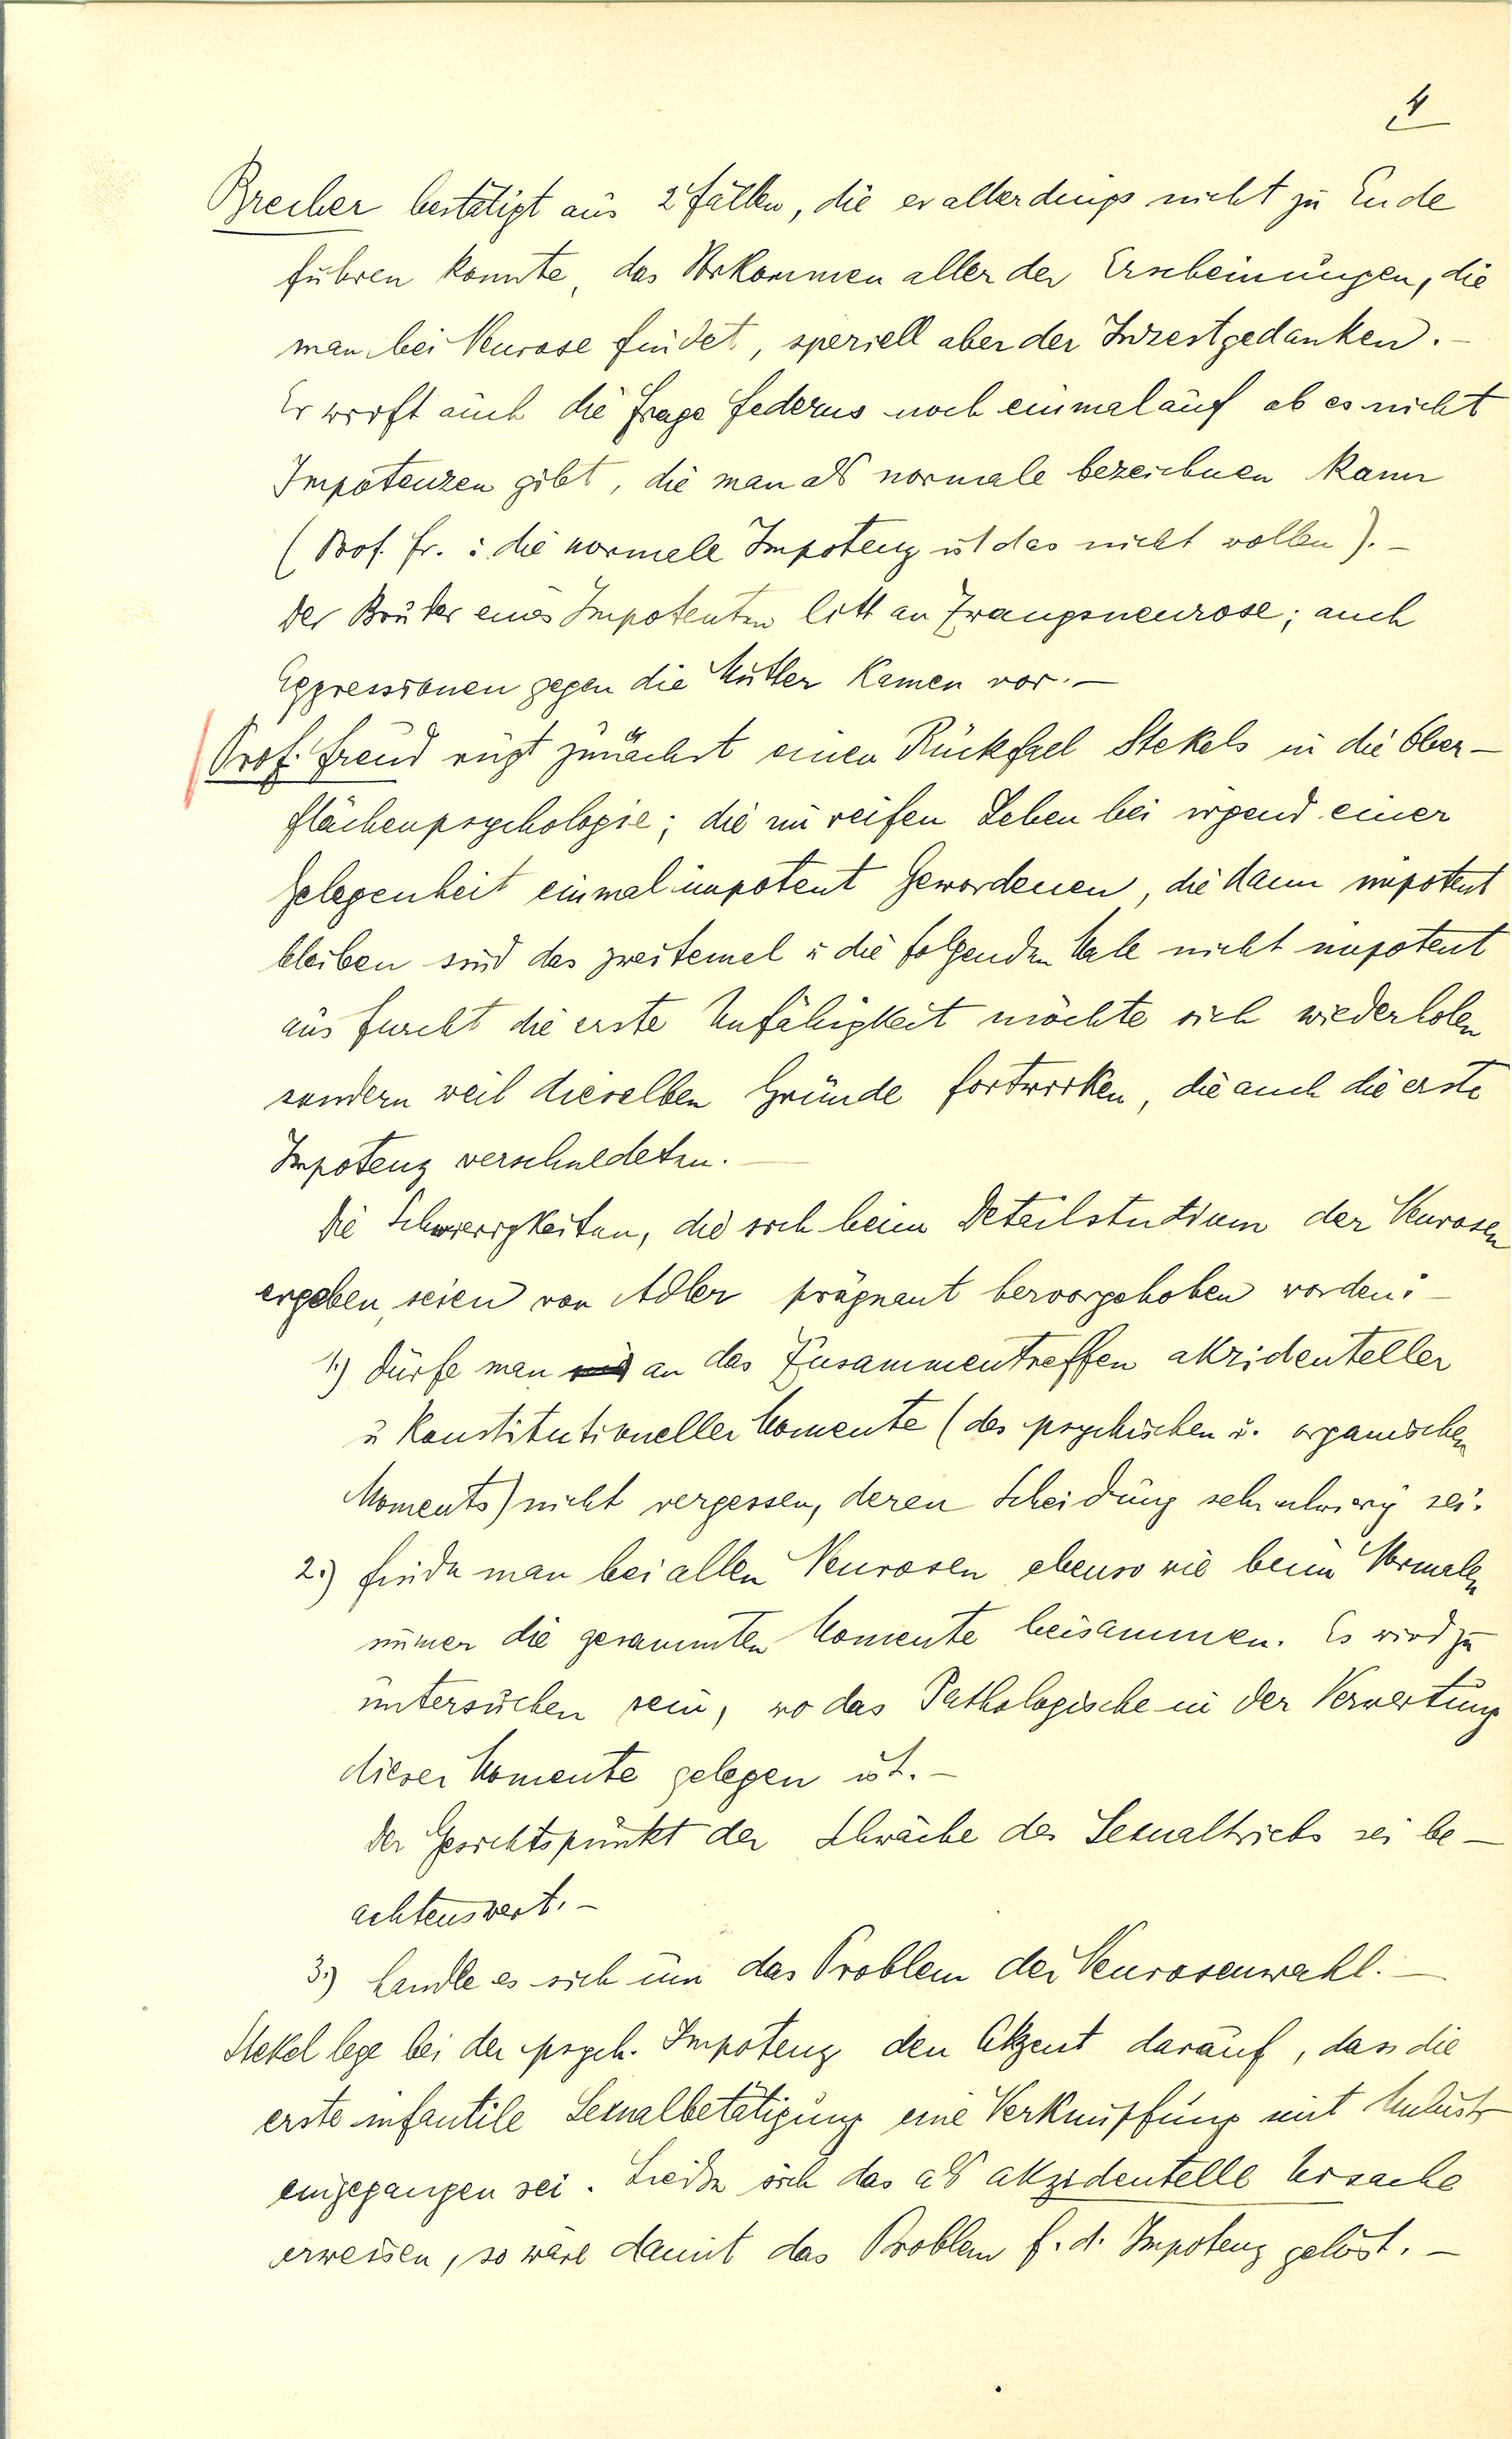 4
Brecher bestätigt aus 2 Fällen, die er allerdings nicht zu Ende
führen konnte, das Vorkommen aller der Erscheinungen, die
man bei Neurose findet, speziell aber der Inzestgedanken. –
Er wirft auch die Frage Federns noch einmal auf ob es nicht
Impotenzen gibt, die man als normale bezeichnen kann
(Prof. Fr. : die normale Impotenz ist das nicht wollen). –
Der Bruder eines Impotenten litt an Zwangsneurose; auch
Aggressionen gegen die Mutter kamen vor. –
Prof. Freud rügt zunächst einen Rückfall Stekels in die Ober-
flächenpsychologie; die im reifen Leben bei irgend einer
Gelegenheit einmal impotent Gewordenen, die dann impotent
bleiben sind das zweitemal u die folgenden Male nicht impotent
aus Furcht die erste Unfähigkeit möchte sich wiederholen
sondern weil dieselben Gründe fortwirken, die auch die erste
Impotenz verschuldeten. –
Die Schwierigkeiten, die sich beim Detailstudium der Neurosen
ergeben, seien von Adler prägnant hervorgehoben worden: –
1.) dürfe man an das Zusammentreffen akzidenteller
u konstitutioneller Momente (des psychischen u. organischen
Moments) nicht vergessen, deren Scheidung sehr schwierig sei.
2.) finde man bei allen Neurosen ebenso wie beim Normalen
immer die gesammten Momente beisammen. Es wird zu
untersuchen sein, wo das Pathologische in der Verwertung
dieser Momente gelegen ist. –
Der Gesichtspunkt der Schwäche des Sexualtriebs sei be-
achtenswert. –
3.) handle es sich um das Problem der Neurosenwahl. –
Stekel lege bei der psych. Impotenz den Akzent darauf, dass die
erste infantile Sexualbetätigung eine Verknüpfung mit Unlust
eingegangen sei. Ließe sich das als akzidentelle Ursache
erweisen, so wäre damit das Problem f. d. Impotenz gelöst. –